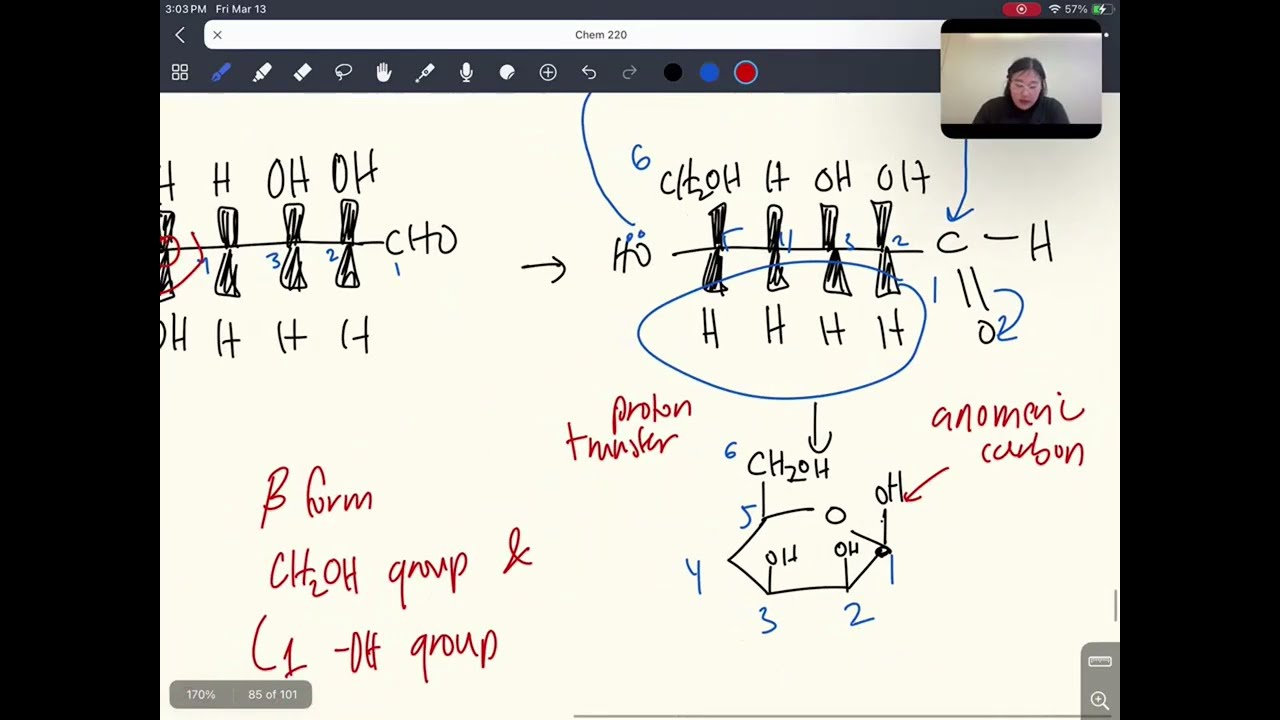 3:03 PM Fri Mar 13
57%
Chem 220
H H OH OH
CHO
4 3 2 1
OH H H H
→
6
CH2OH H OH OH
HO 5 4 3 2 C — H
1
H H H H
O
proton
transfer
anomeric
carbon
6
CH2OH
OH
5
O
4
OH OH
1
3 2
β form
CH2OH group &
C1 -OH group
170% 85 of 101